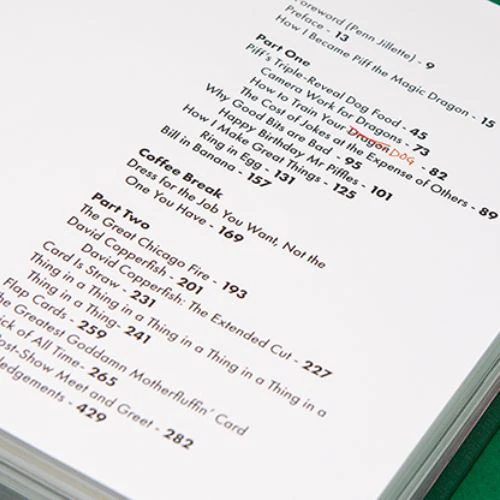 Foreword (Penn Jillette) - 9
Preface - 13
How I Became Piff the Magic Dragon - 15
Part One
Piff's Triple-Reveal Dog Food - 45
Camera Work for Dragons - 73
How to Train Your Dragon DOG - 82
The Cost of Jokes at the Expense of Others - 89
Why Good Bits are Bad - 95
Happy Birthday Mr Piffles - 101
How I Make Great Things - 125
Ring in Egg - 131
Bill in Banana - 157
Coffee Break
Dress for the Job You Want, Not the
One You Have - 169
Part Two
The Great Chicago Fire - 193
David Copperfish - 201
David Copperfish: The Extended Cut - 227
Card Is Straw - 231
Thing in a Thing in a Thing in a Thing in a Thing in a
Thing in a Thing- 241
Flap Cards - 259
the Greatest Goddamn Motherfluffin' Card
ick of All Time- 265
Post-Show Meet and Greet - 282
ledgements - 429